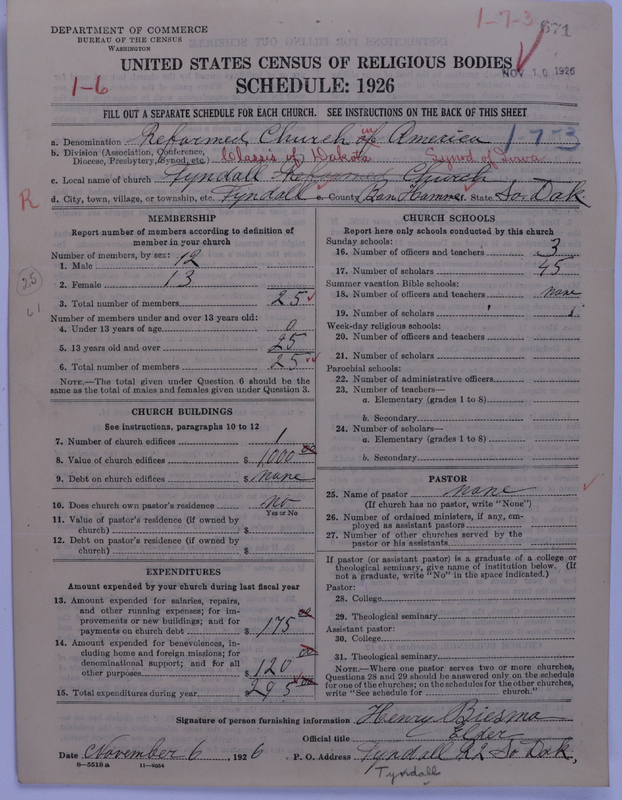 1-7-3
671
DEPARTMENT OF COMMERCE
BUREAU OF THE CENSUS
WASHINGTON
NOV 10 1926
UNITED STATES CENSUS OF RELIGIOUS BODIES
1-6
SCHEDULE: 1926
FILL OUT A SEPARATE SCHEDULE FOR EACH CHURCH. SEE INSTRUCTIONS ON THE BACK OF THIS SHEET
a. Denomination Reformed Church in America 1 7-3
b. Division (Association, Conference, Diocese, Presbytery, Synod, etc.) Classis of Dakota Synod of Iowa
c. Local name of church Tyndall Reformed Church
R
d. City, town, village, or township, etc. Tyndall e. County Bon Hammer State So. Dak
MEMBERSHIP
Report number of members according to definition of
member in your church
Number of members, by sex:
1. Male 12
2. Female 13
25
3. Total number of members 25
Number of members under and over 13 years old:
4. Under 13 years of age 0
5. 13 years old and over 25
6. Total number of members 25
NOTE.—The total given under Question 6 should be
same as the total of males and females given under Question 3.
CHURCH BUILDINGS
See instructions, paragraphs 10 to 12
7. Number of church edifices 1
8. Value of church edifices $ 1000 00
9. Debt on church edifices $ none
10. Does church own pastor's residence no
Yes or No
11. Value of pastor's residence (if owned by
church) $
12. Debt on pastor's residence (if owned by
church) $
EXPENDITURES
Amount expended by your church during last fiscal year
13. Amount expended for salaries, repairs,
and other running expenses; for im-
provements or new buildings; and for
payments on church debt $ 175 00
14. Amount expended for benevolences, in-
cluding home and foreign missions; for
denominational support; and for all
other purposes $ 120 00
15. Total expenditures during year $ 295 00
CHURCH SCHOOLS
Report here only schools conducted by this church
Sunday schools:
16. Number of officers and teachers 3
17. Number of scholars 45
Summer vacation Bible schools:
18. Number of officers and teachers none
19. Number of scholars
Week-day religious schools:
20. Number of officers and teachers
21. Number of scholars
Parochial schools:
22. Number of administrative officers
23. Number of teachers—
a. Elementary (grades 1 to 8)
b. Secondary
24. Number of scholars—
a. Elementary (grades 1 to 8)
b. Secondary
PASTOR
25. Name of pastor none
(If church has no pastor, write "None")
26. Number of ordained ministers, if any, em-
ployed as assistant pastors
27. Number of other churches served by the
pastor or his assistants
If pastor (or assistant pastor) is a graduate of a college or
theological seminary, give name of institution below. (If
not a graduate, write "No" in the space indicated.)
Pastor:
28. College
29. Theological seminary
Assistant pastor:
30. College
31. Theological seminary
NOTE.—Where one pastor serves two or more churches,
Questions 28 and 29 should be answered only on the schedule
for one of the churches; on the schedules for the other churches,
write "See schedule for church."
Signature of person furnishing information Henry Biesma
Official title Elder
Date November 6, 1926 P. O. Address Tyndall R2 So Dak,
8-5518 a 11-9054
Tyndall